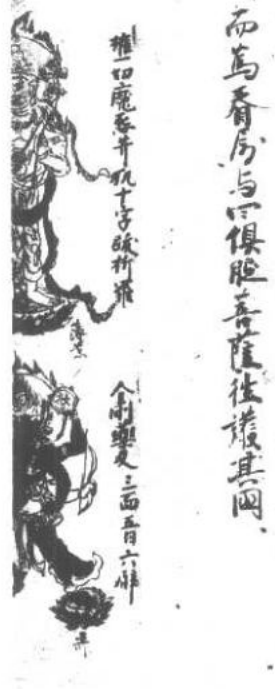 而為眷属与四俱胝菩薩往護其国、
摧一切魔怨并執十字跋折羅
金剛藥叉三面五目六臂